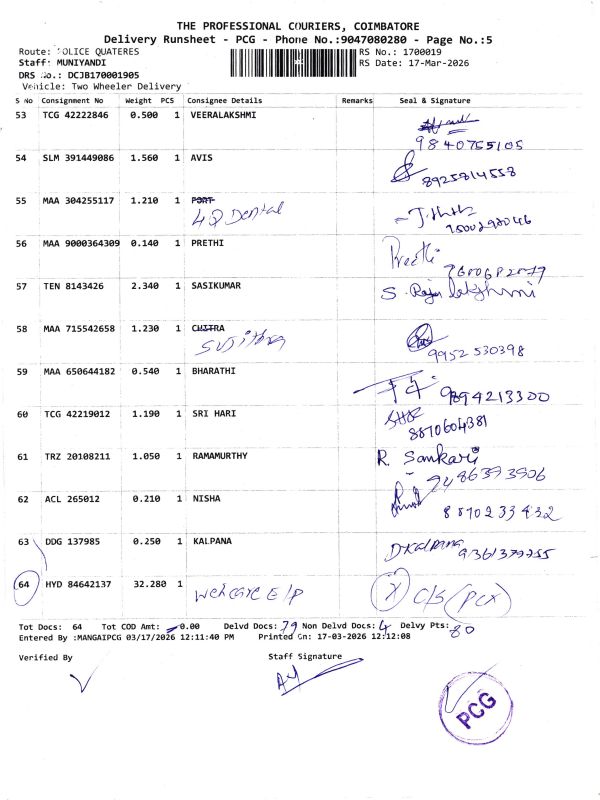 THE PROFESSIONAL COURIERS, COIMBATORE
Delivery Runsheet - PCG - Phone No.:9047080280 - Page No.:5
Route: POLICE QUATERES RS No.: 1700019
Staff: MUNIYANDI RS Date: 17-Mar-2026
DRS No.: DCJB170001905
Vehicle: Two Wheeler Delivery
S No Consignment No Weight PCS Consignee Details Remarks Seal & Signature
53 TCG 42222846 0.500 1 VEERALAKSHMI
9840755105
54 SLM 391449086 1.560 1 AVIS
8925814558
55 MAA 304255117 1.210 1 PORT
42 Dental
56 MAA 9000364309 0.140 1 PRETHI Preethi
57 TEN 8143426 2.340 1 SASIKUMAR S. Raja lakshmi
58 MAA 715542658 1.230 1 CHITRA
Sujithra 9952 530398
59 MAA 650644182 0.540 1 BHARATHI
9894213300
60 TCG 42219012 1.190 1 SRI HARI
8870604381
61 TRZ 20108211 1.050 1 RAMAMURTHY R. Sankari
9486393906
62 ACL 265012 0.210 1 NISHA
8870233432
63 DDG 137985 0.250 1 KALPANA D Kalpana
9361379255
64 HYD 84642137 32.280 1 Welcare E/P X C/S (PCX)
Tot Docs: 64 Tot COD Amt: 0.00 Delvd Docs: 79 Non Delvd Docs: 4 Delvy Pts: 80
Entered By :MANGAIPCG 03/17/2026 12:11:40 PM Printed On: 17-03-2026 12:12:08
Verified By Staff Signature
PCG